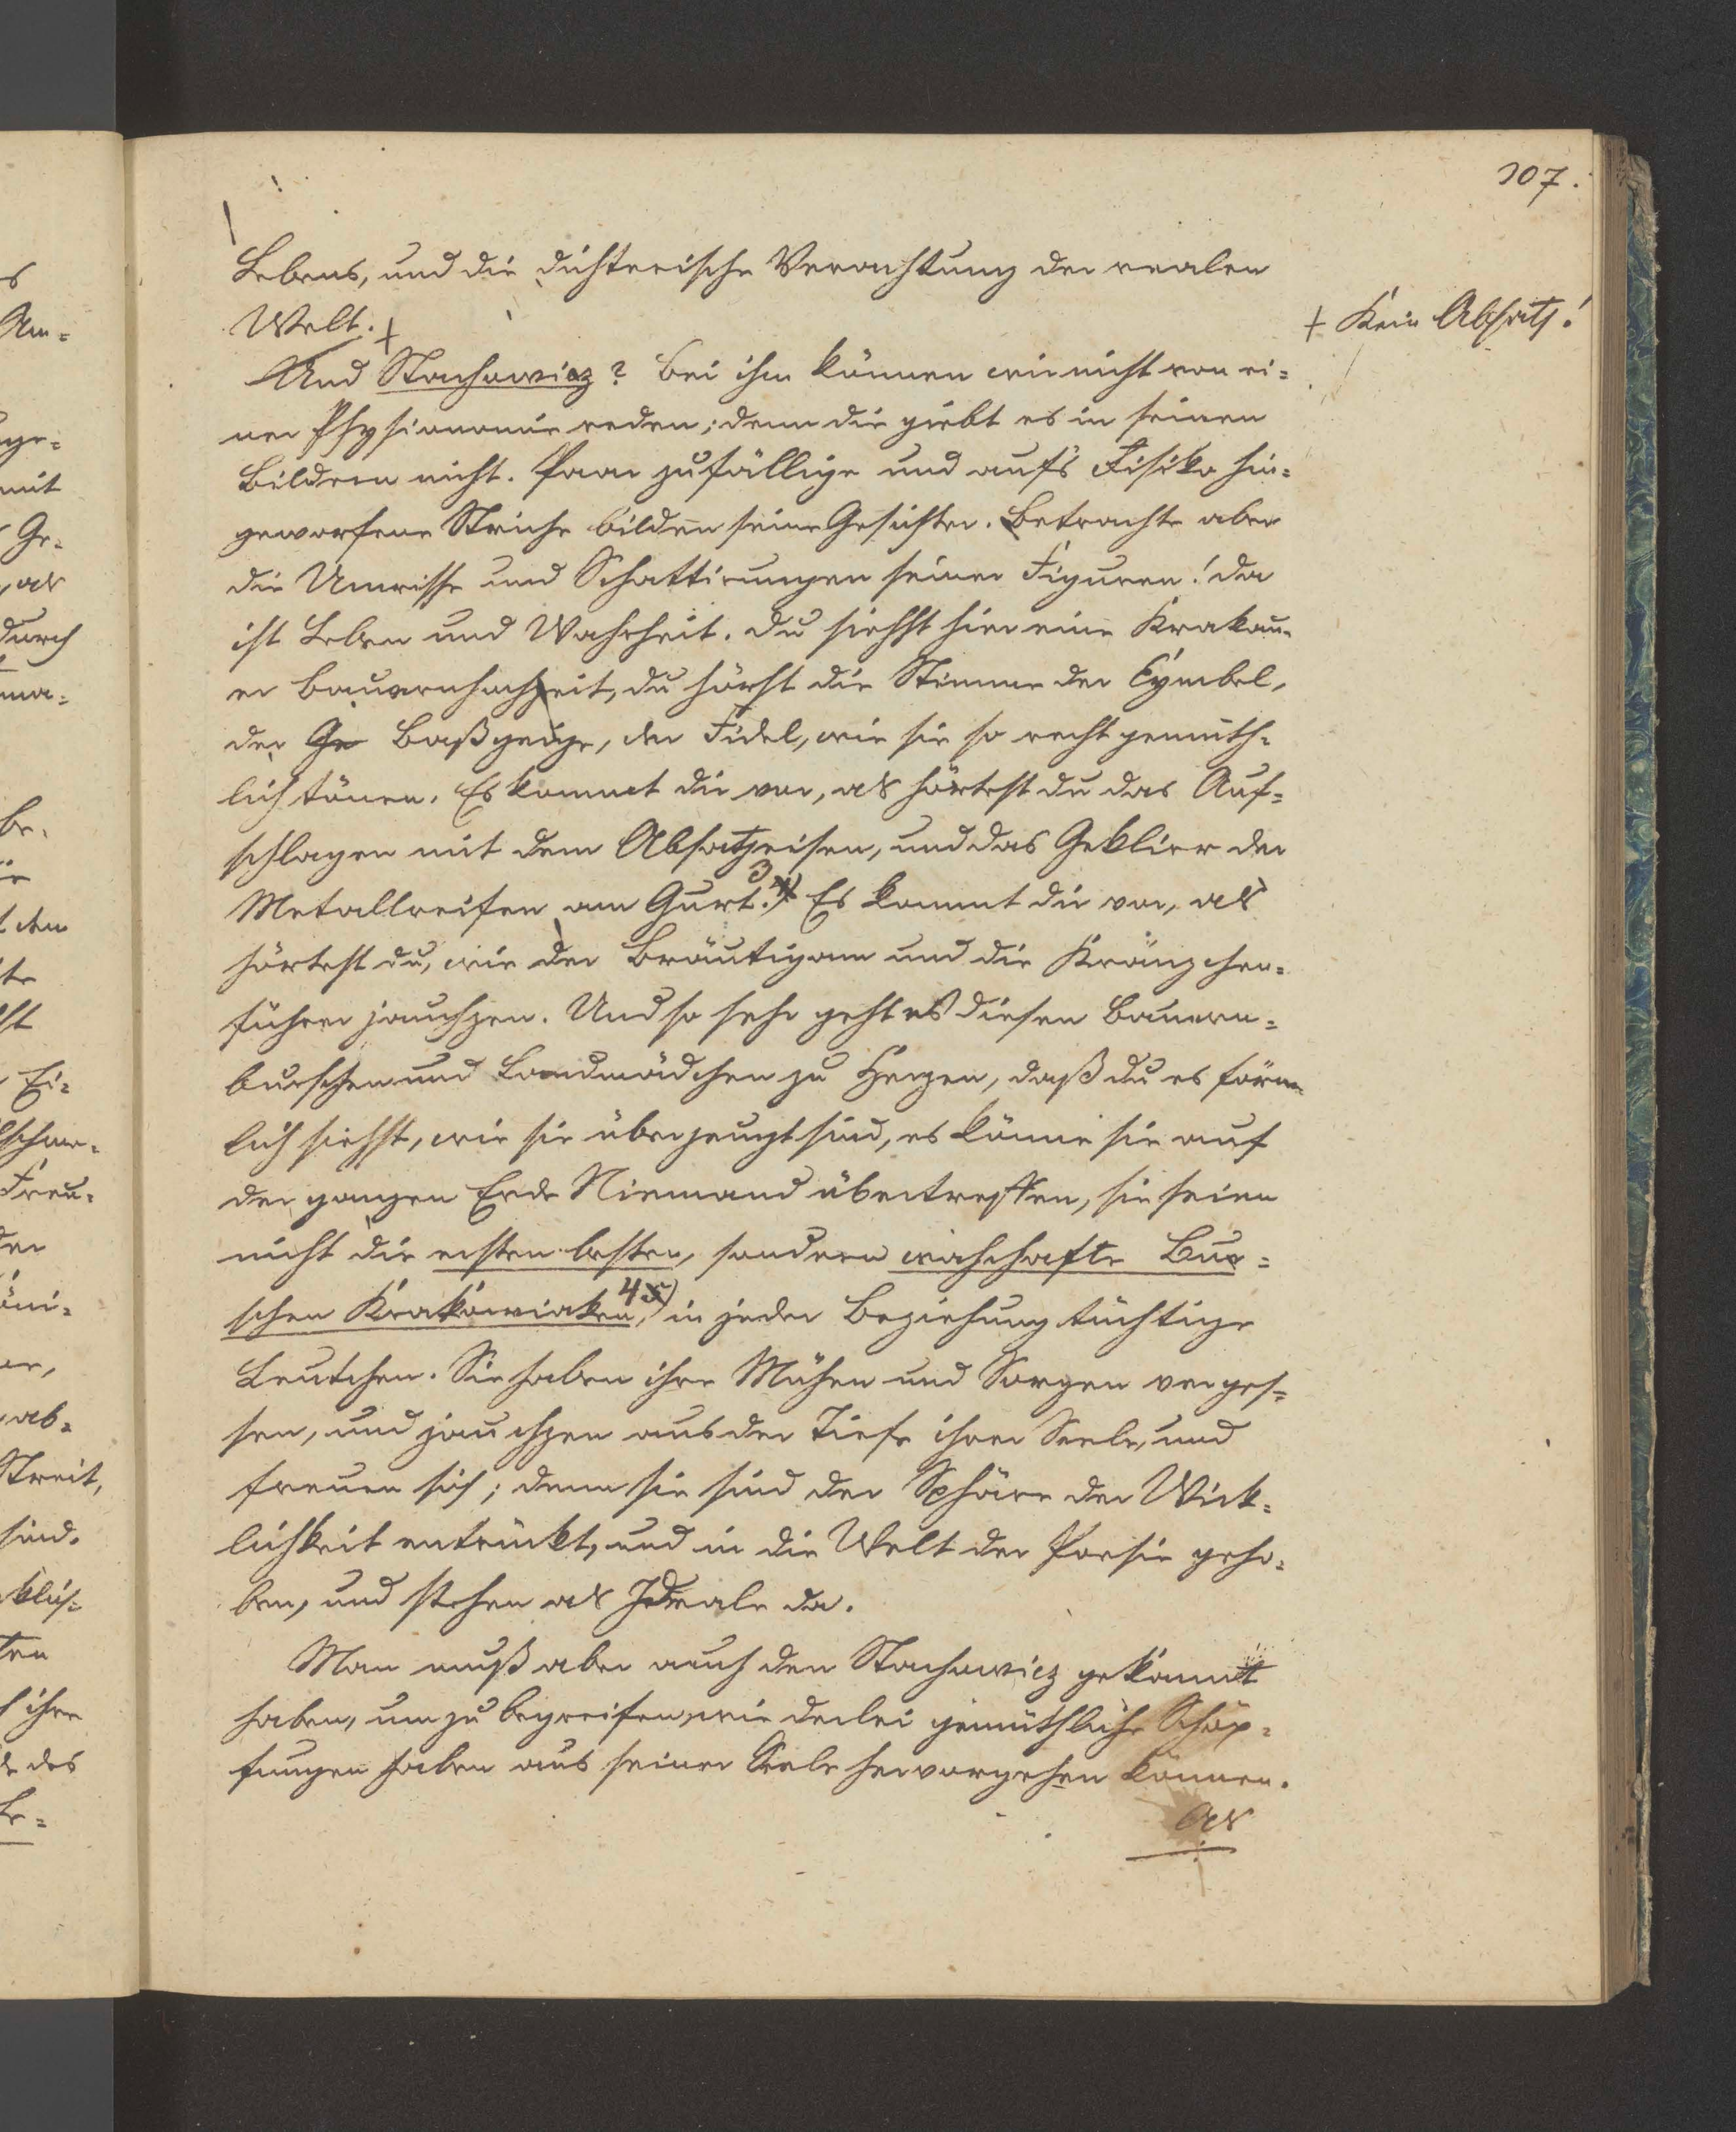 107.
Lebens, und die dichterische Verachtung der realen
Welt. +
+ Kein Absatz!
Und Stachowicz? Bei ihm können wir nicht von ei-
ner Physionomie reden; denn die giebt es in seinen
Bildern nicht. Paar zufällige und auf's Risiko hin-
geworfene Striche bilden seine Gesichter. Betrachte aber
die Umrisse und Schattirungen seiner Figuren! da
ist Leben und Wahrheit. Du siehst hier eine Krakau-
er Bauernhochzeit, du hörst die Stimme der Cymbel,
der Ge Baßgeige, der Fidel, wie sie so recht gemüth-
lich tönen. Es kommt dir vor, als hörtest du das Auf-
schlagen mit dem Absatzeisen, und das Geklirr der
Metallreifen am Gurt. 3) Es kommt dir vor, als
hörtest du, wie der Bräutigam und die Kränzchen-
führer jauchzen. Und so sehr geht es diesen Bauern-
burschen und Landmädchen zu Herzen, daß du es förm-
lich siehst, wie sie überzeugt sind, es könne sie auf
der ganzen Erde Niemand übertreffen, sie seien
nicht die ersten besten, sondern wahrhafte Bur-
schen Krakowiaken, 4) in jeder Beziehung tüchtige
Leutchen. Sie haben ihre Mühen und Sorgen verges-
sen, und jauchzen aus der Tiefe ihrer Seele, und
freuen sich; denn sie sind der Sphäre der Wirk-
lichkeit entrückt, und in die Welt der Poesie geho-
ben, und stehen als Ideale da.
Man muß aber auch den Stachowicz gekannt
haben, um zu begreifen, wie derlei gemüthliche Schöp-
fungen haben aus seiner Seele hervorgehen können.
Als